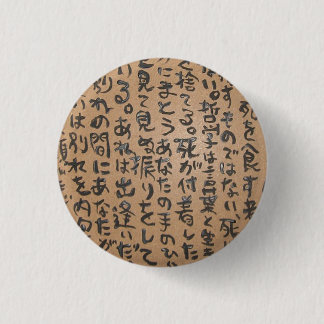 死を食すオ
すものではない。死
い。哲学は言葉と生
で捨てる。死が付着した
にまとうあなたの手のひ
と見て見ぬ振りをして
ける。あれは出逢いだ
別れの間にあなたが
いは別れを内包